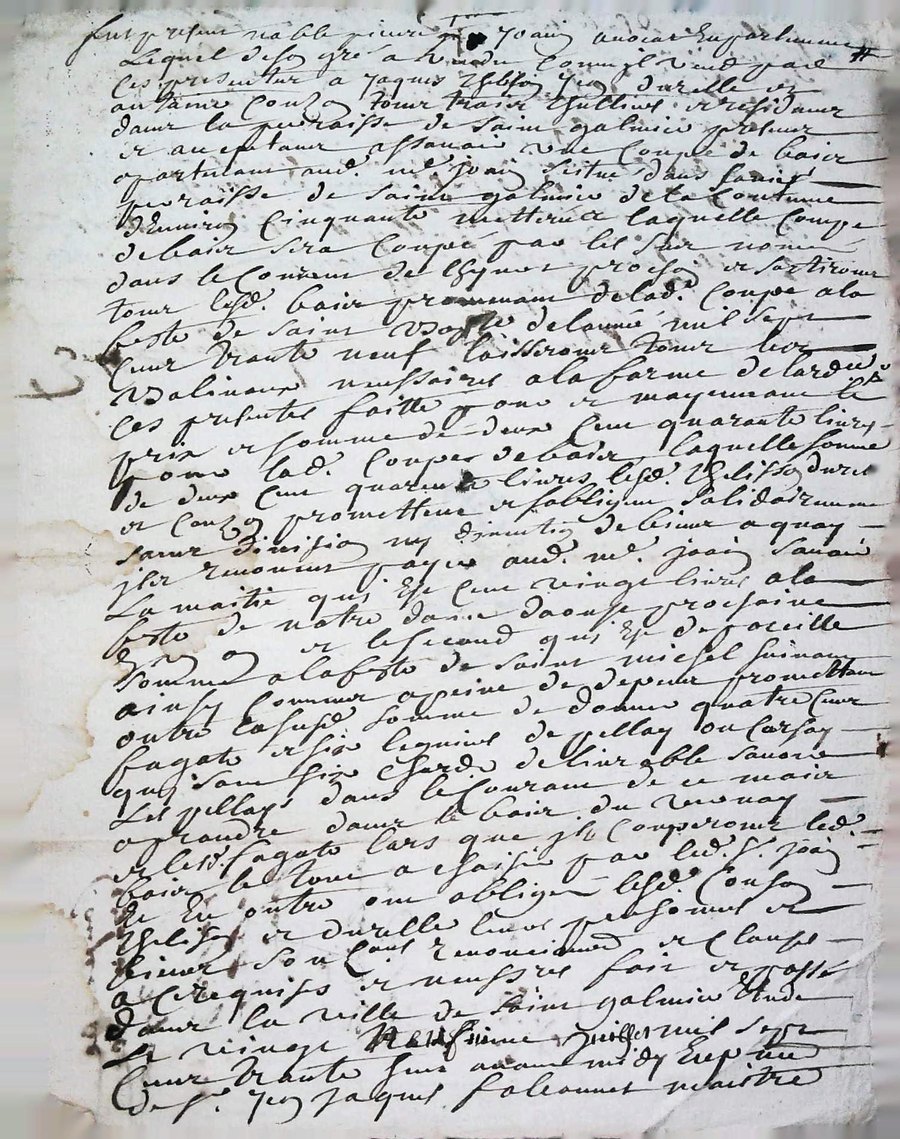 fut present noble pierre joain avocat en parlement #
Lequel de son gré a vendu comme il vend par
ces presentes a jaques Thelisson jean durelle et
antoine Couzon tous trois et residants
dans la parroisse de saint galmier presents
et acceptants assavoir une coupe de bois
apartenant aud. me. joain scitué dans
parroisse de saint galmier de la contenue
denviron cinquante metterée laquelle couppe
de bois sera coupé par les sus nomes
dans le courent de lhyver prochain et sortiront
tous lesd. bois provenant de lad. coupe a la
feste de saint de lannée mil sept
cent trante neuf laisseront tous les
balivaux necessaires a la forme de lordce
ces presentes faitte pour et moyennant le
prix et somme de deux cent quarante livres
pour lad. coupe de bois laquelle somme
de deux cent quarente livres lesd. Thelisson durelle
et Couzon promettent et sobligent solidairement
sans division ny discution de biens a quoy
ils renoncent payer aud. me. joain savoir
La moitié qui est cent vingt livres a la
feste de notre dame daoust prochaine
et le second qui est de pareille
somme a la feste de saint michel suivant
ainsy comme a peine de depens promettant
outre la susd. somme de donner quatre cent
fagots et six de pellay ou
qui sont six de livrable savoir
Les pellays dans le courant de ce mois
a prandre dans le bois du vernay
et lesd. fagots lors que ils couperont led.
bois le tout a choisir par led. s. joain
et en outre ont obligé lesd. Couzon
Thelisson et durelle leurs personnes et
biens renonciations et clauses
a ce requises et necessres fait et passé
dans la ville de saint galmier Etude
Le vingt neufvieme juillet mil sept
cent trante huit avant midy En pnce
de sr. jean jaques faleonnet maistre